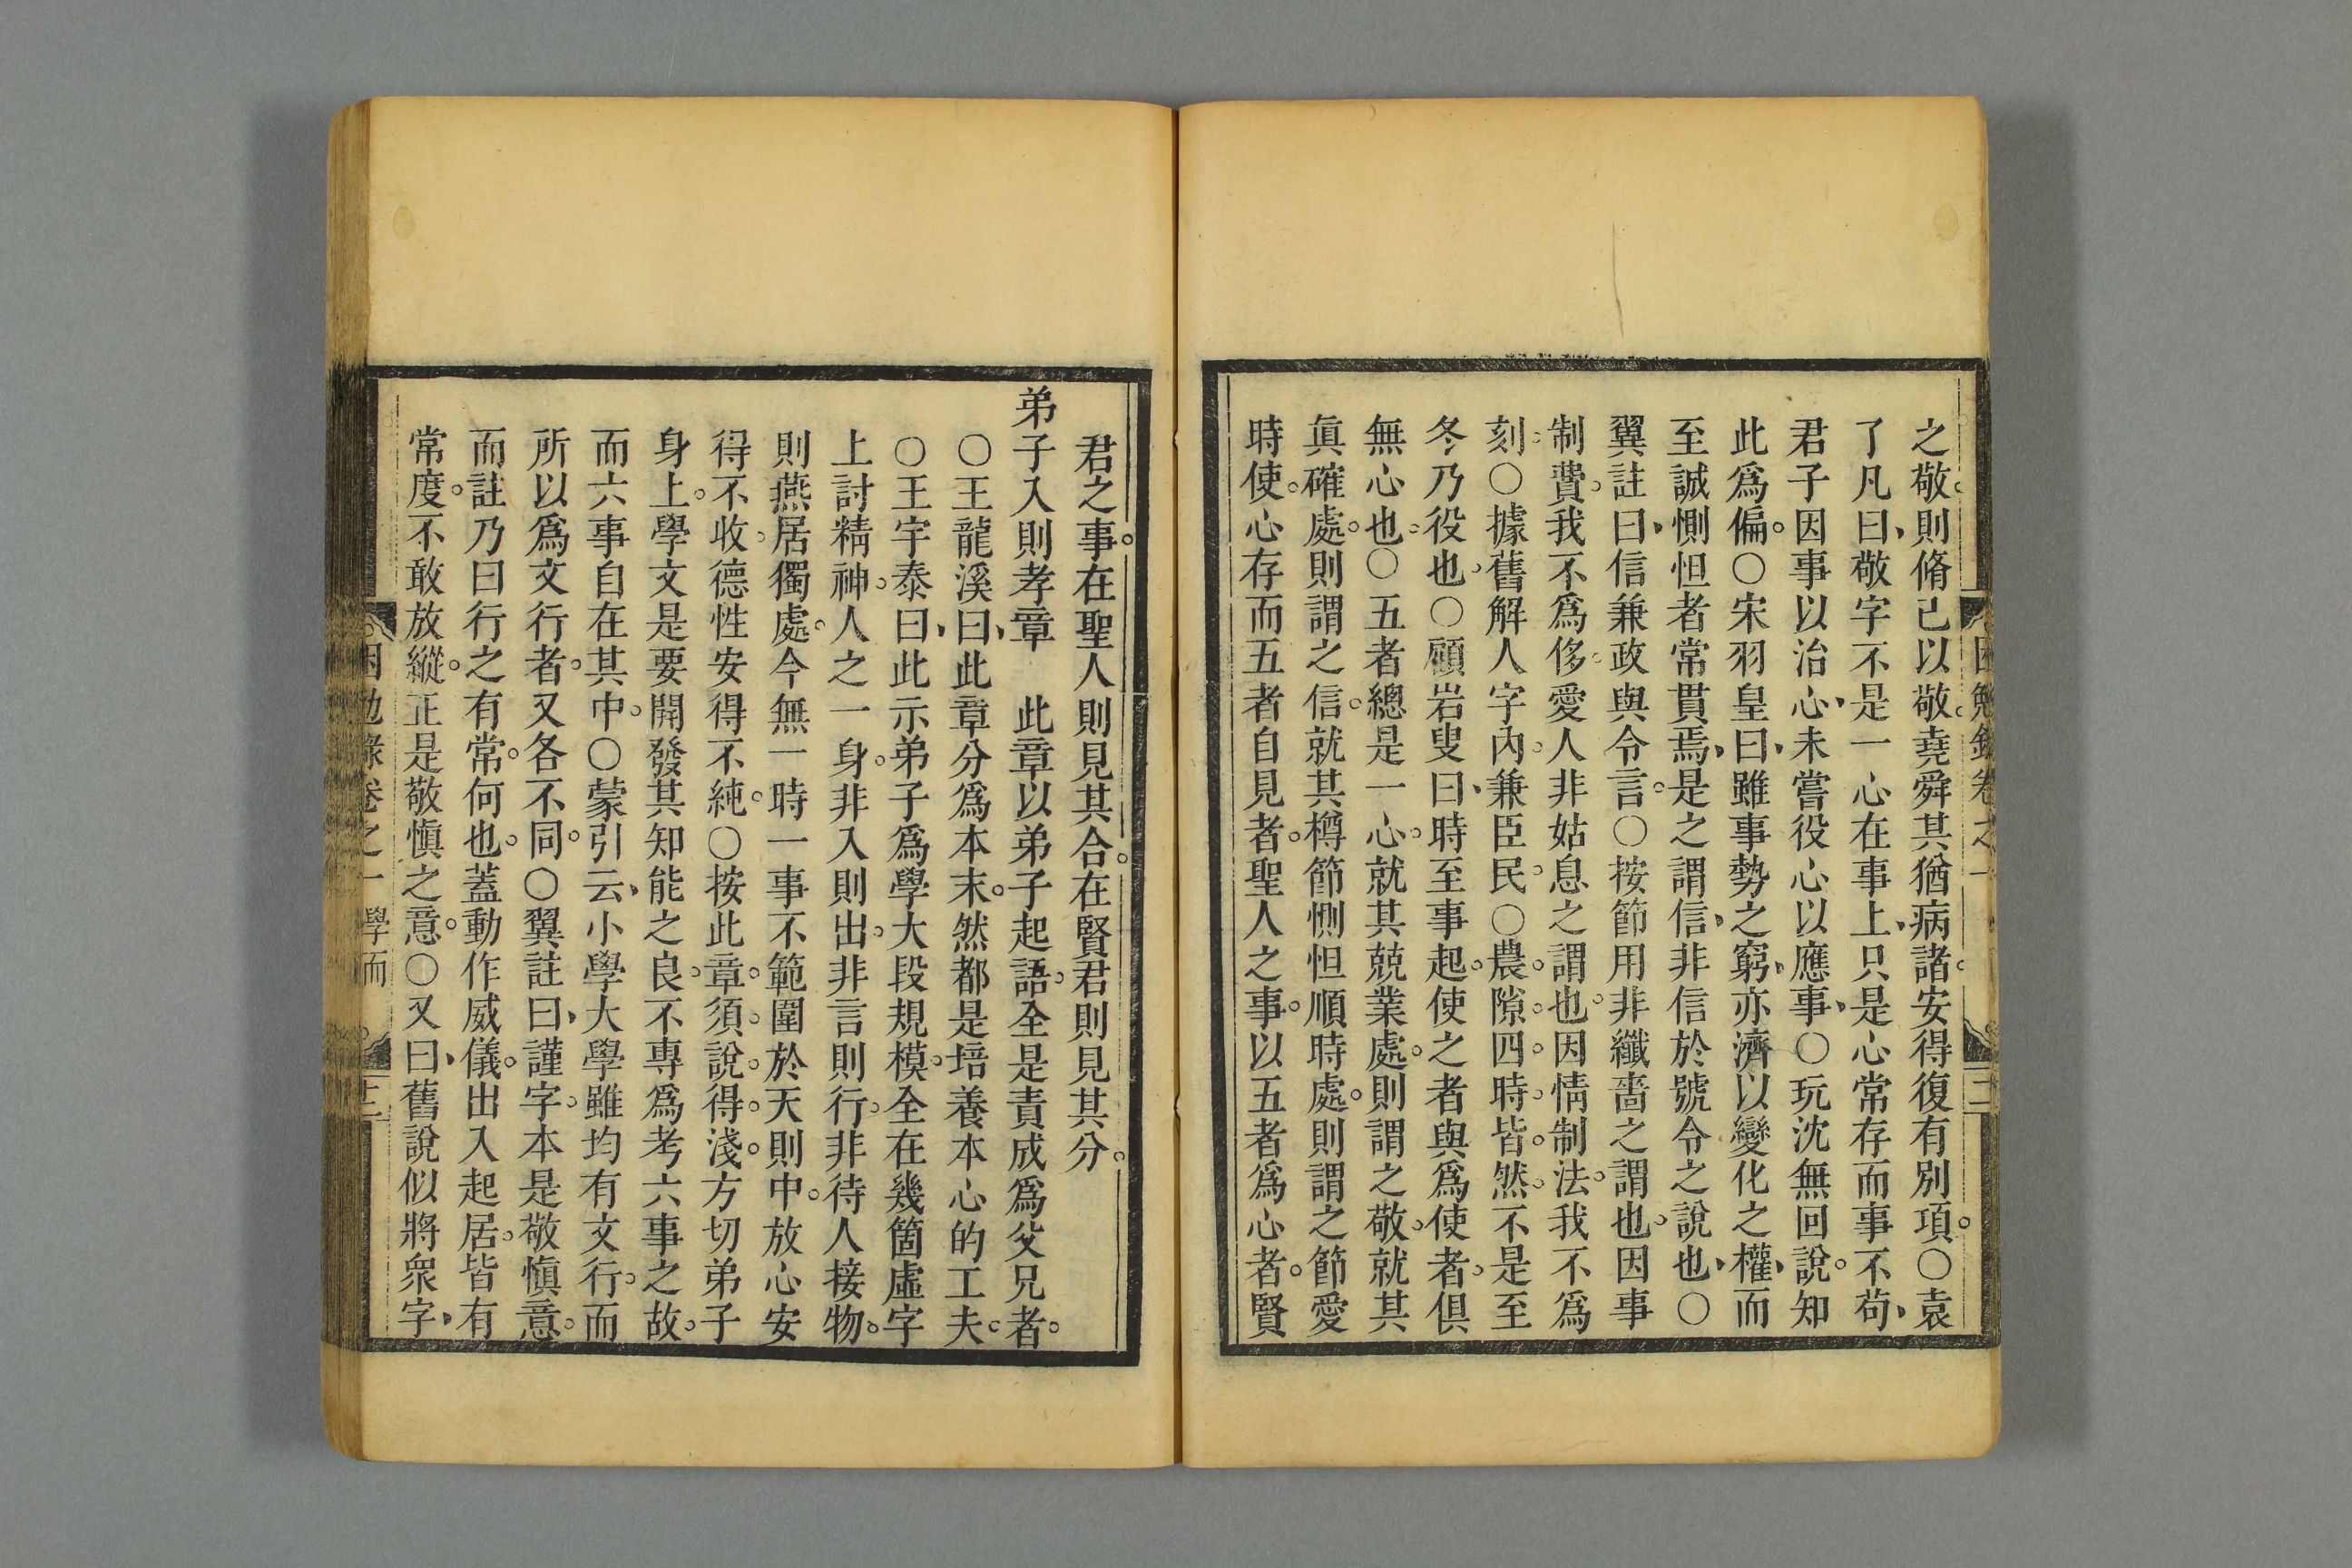 之敬則脩己以敬堯舜其猶病諸安得復有別項○袁
了凡曰敬字不是一心在事上只是心常存而事不苟
君子因事以治心未嘗役心以應事○玩沈無回說知
此爲偏○宋羽皇曰雖事勢之窮亦濟以變化之權而
至誠惻怛者常貫焉是之謂信非信於號令之說也○
翼註曰信兼政與令言○按節用非纖嗇之謂也因事
制費我不爲侈愛人非姑息之謂也因情制法我不爲
刻○據舊解人字內兼臣民○農隙四時皆然不是至
冬乃役也○顧岩叟曰時至事起使之者與爲使者俱
無心也○五者總是一心就其兢業處則謂之敬就其
眞確處則謂之信就其樽節惻怛順時處則謂之節愛
時使心存而五者自見者聖人之事以五者爲心者賢
君之事在聖人則見其合在賢君則見其分
弟子入則孝章　此章以弟子起語全是責成爲父兄者
○王龍溪曰此章分爲本末然都是培養本心的工夫
○王宇泰曰此示弟子爲學大段規模全在幾箇虛字
上討精神人之一身非入則出非言則行非待人接物
則燕居獨處今無一時一事不範圍於天則中放心安
得不收德性安得不純○按此章須說得淺方切弟子
身上學文是要開發其知能之良不專爲考六事之故
而六事自在其中○蒙引云小學大學雖均有文行而
所以爲文行者又各不同○翼註曰謹字本是敬愼意
而註乃曰行之有常何也蓋動作威儀出入起居皆有
常度不敢放縱正是敬愼之意○又曰舊說似將衆字
困勉錄卷之一　學而　十二